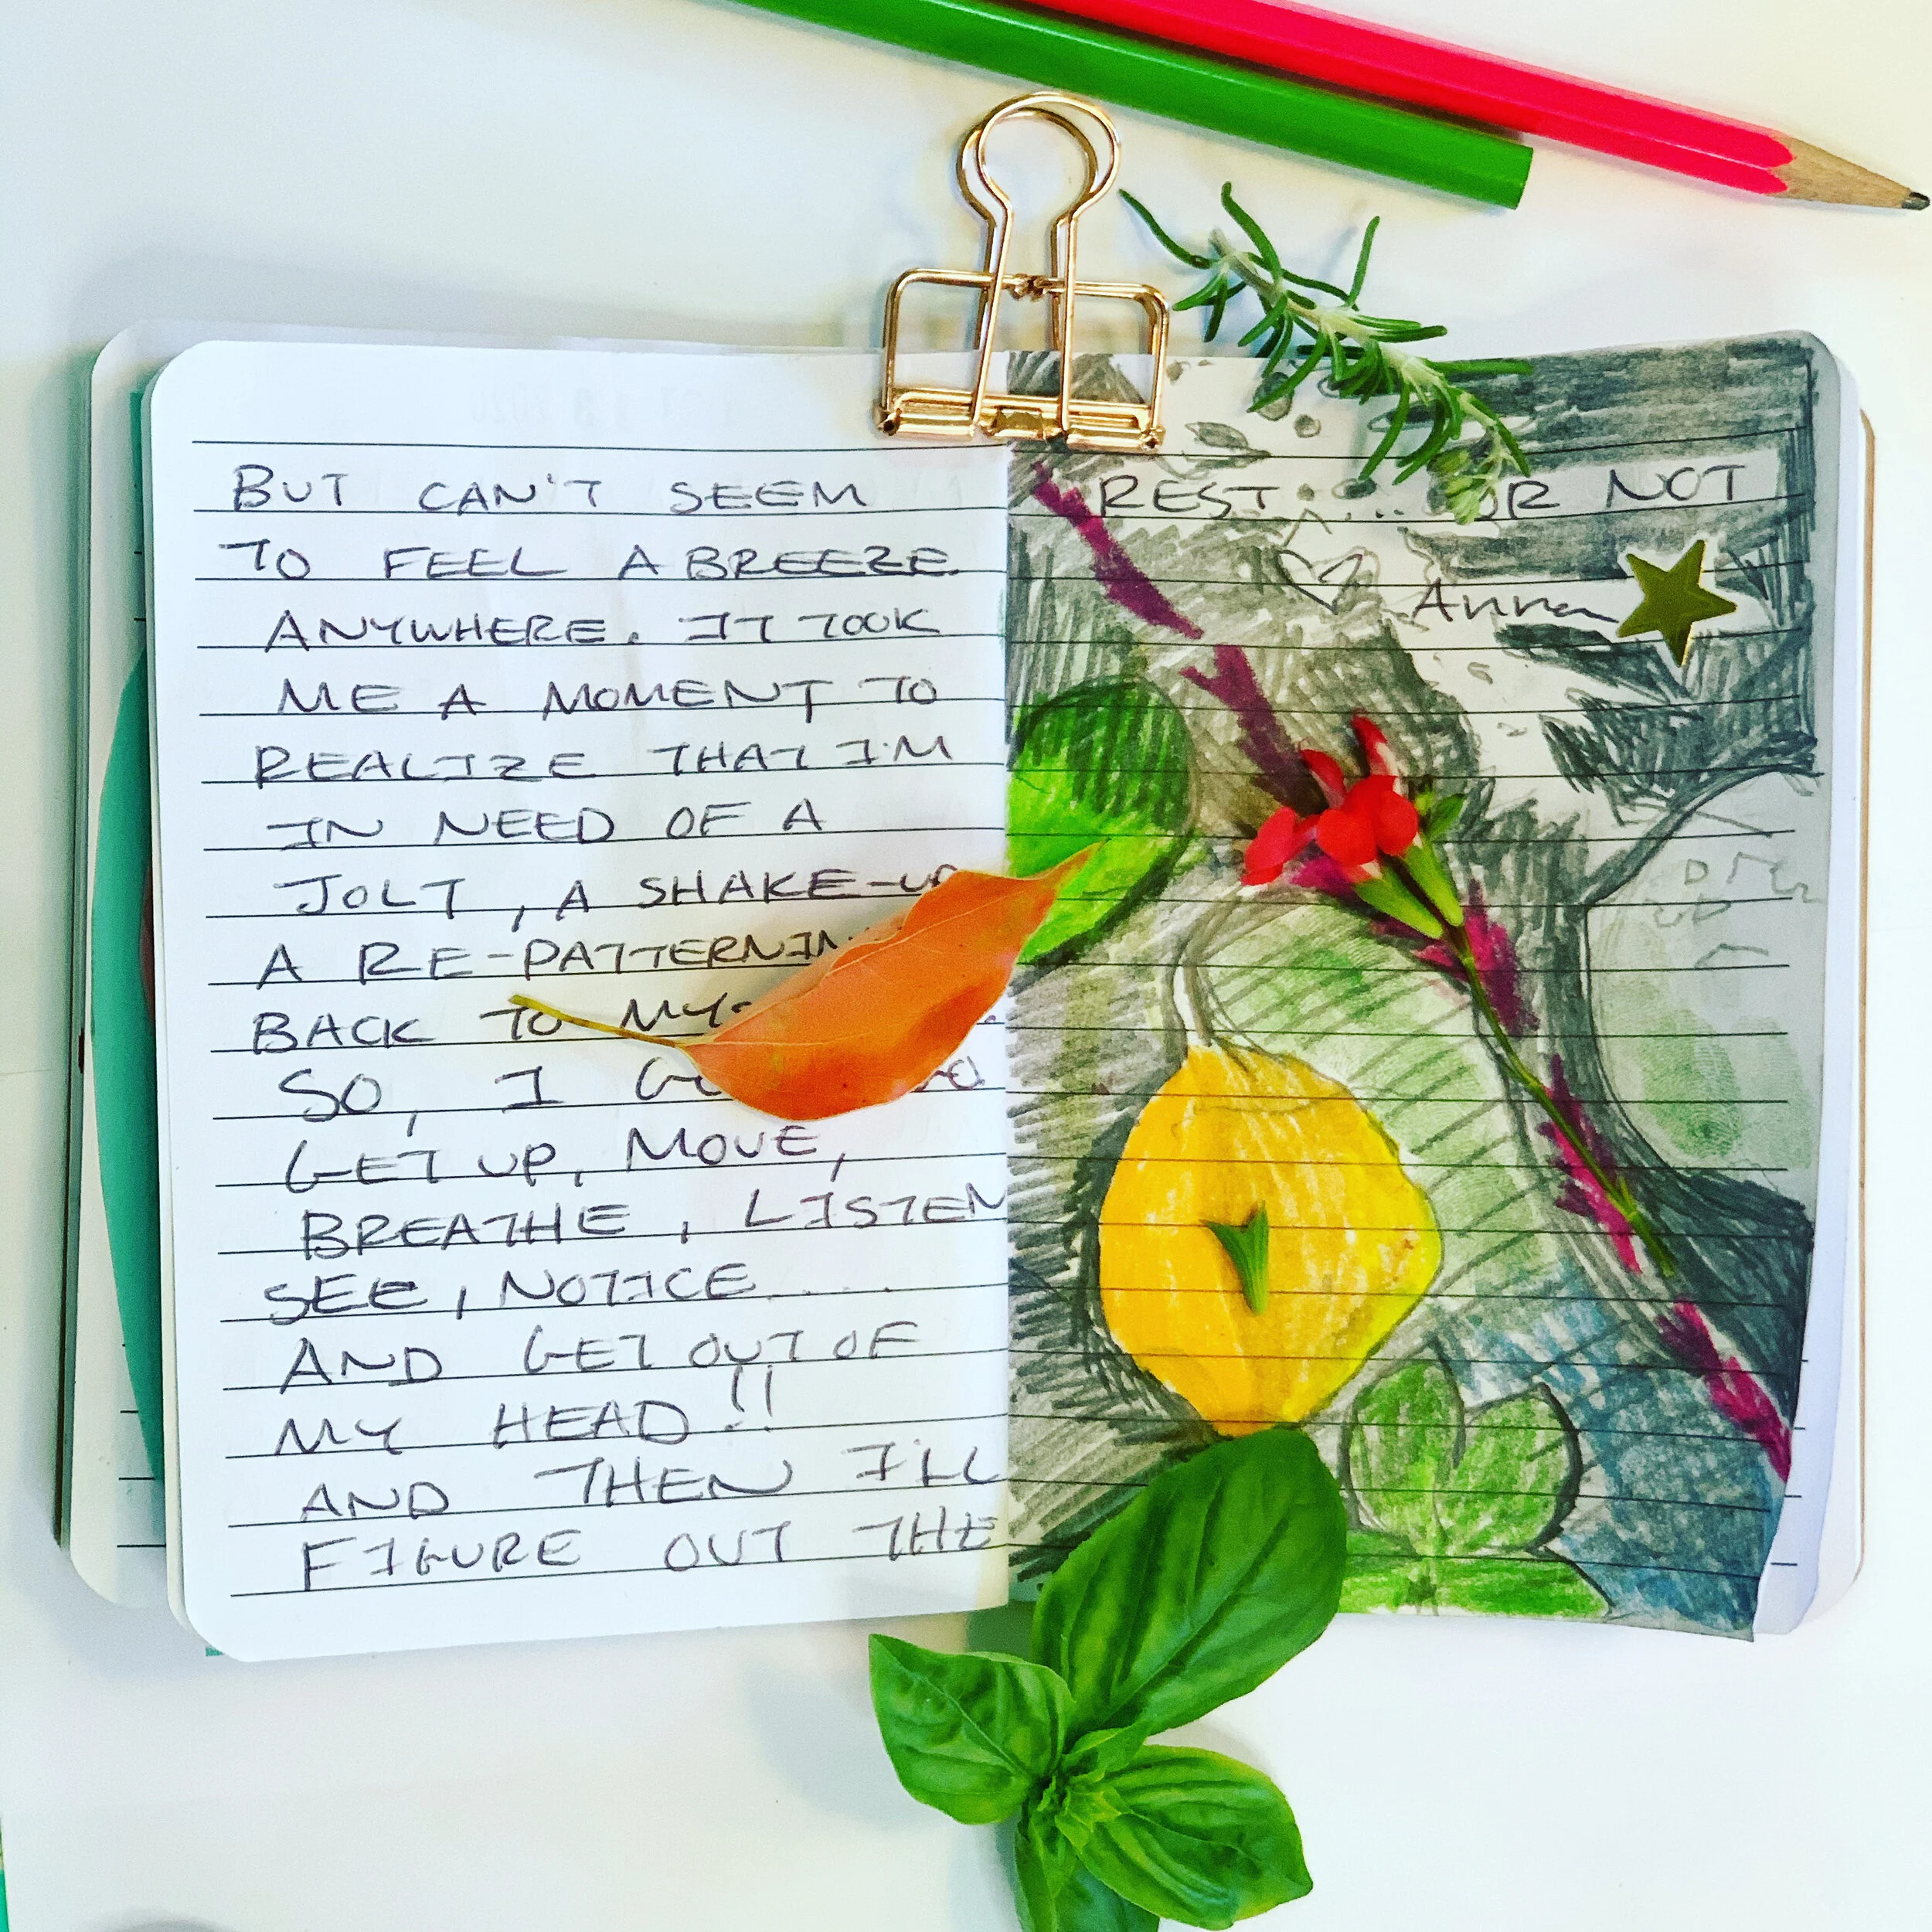 BUT CAN'T SEEM
TO FEEL A BREEZE
ANYWHERE. IT TOOK
ME A MOMENT TO
REALIZE THAT I'M
IN NEED OF A
JOLT, A SHAKE-UP
A RE-PATTERNIN
BACK TO MY
SO, I
GET UP, MOVE,
BREATHE, LISTEN
SEE, NOTICE....
AND GET OUT OF
MY HEAD!!
AND THEN I'LL
FIGURE OUT THE
REST..... OR NOT
Anna